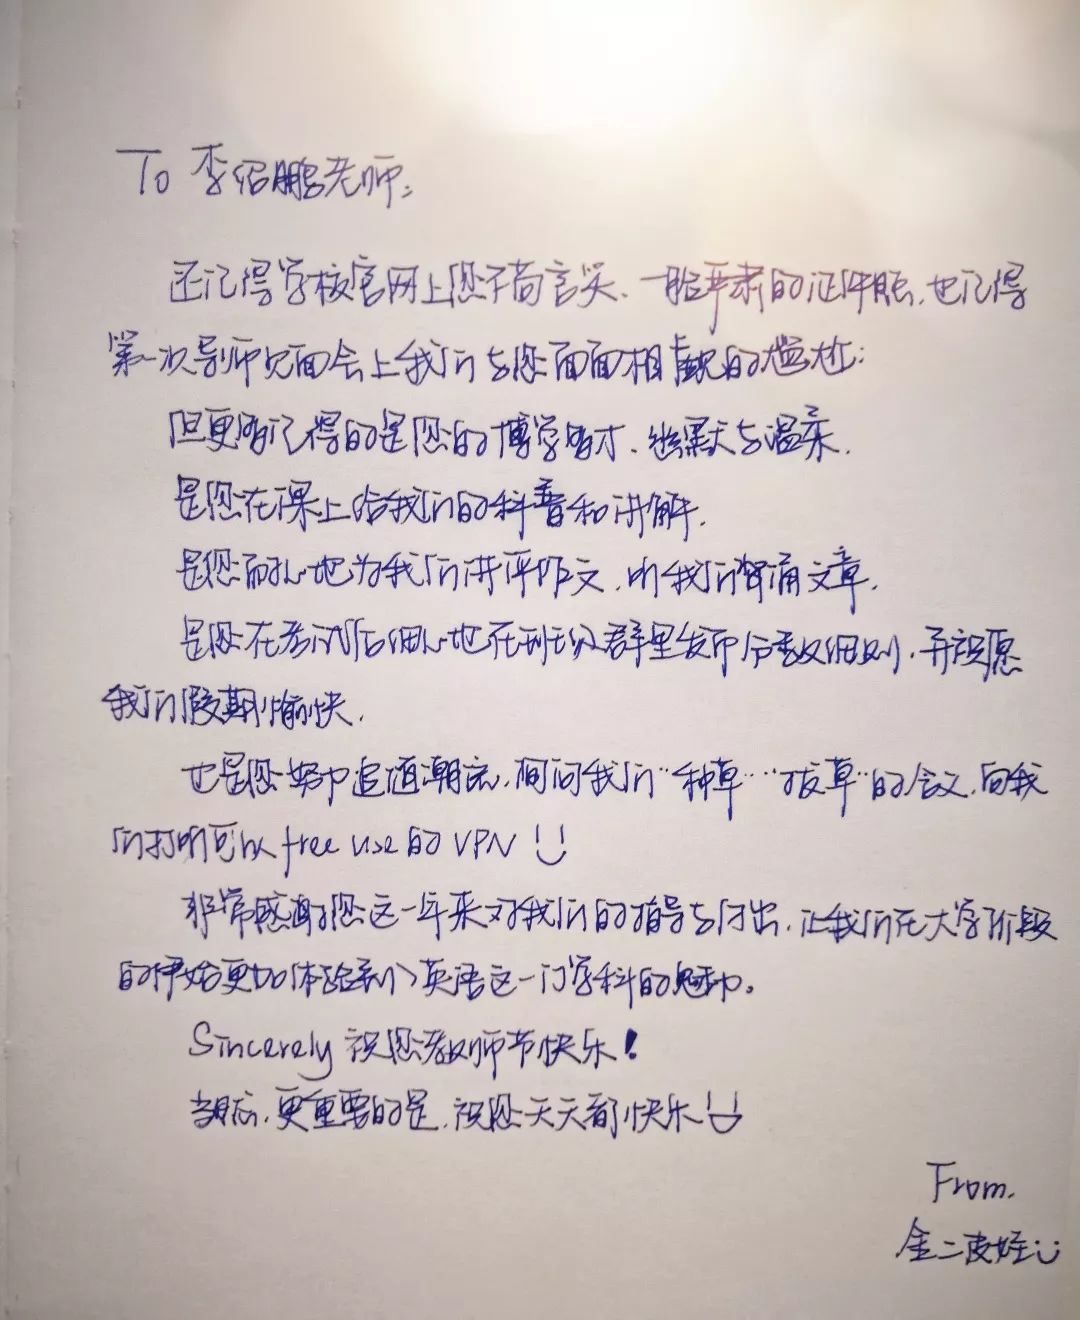 To 李绍鹏老师:
还记得学校官网上您不苟言笑、一脸严肃的证件照,也记得
第一次导师见面会上我们与您面面相觑的尴尬;
但更多记得的是您的博学多才、幽默与温柔.
是您在课上给我们的科普和讲解.
是您耐心地为我们讲评作文,听我们背诵文章.
是您在考试后细心地在班级群里发布分数细则,并祝愿
我们假期愉快.
也是您努力追逐潮流,询问我们“种草”“拔草”的含义,向我
们打听可以free use的VPN
非常感谢您这一年来对我们的指导与付出,让我们在大学阶段
的伊始更加体验到英语这一门学科的魅力。
Sincerely 祝您教师节快乐!
当然,更重要的是,祝您天天都快乐
From.
金二皮